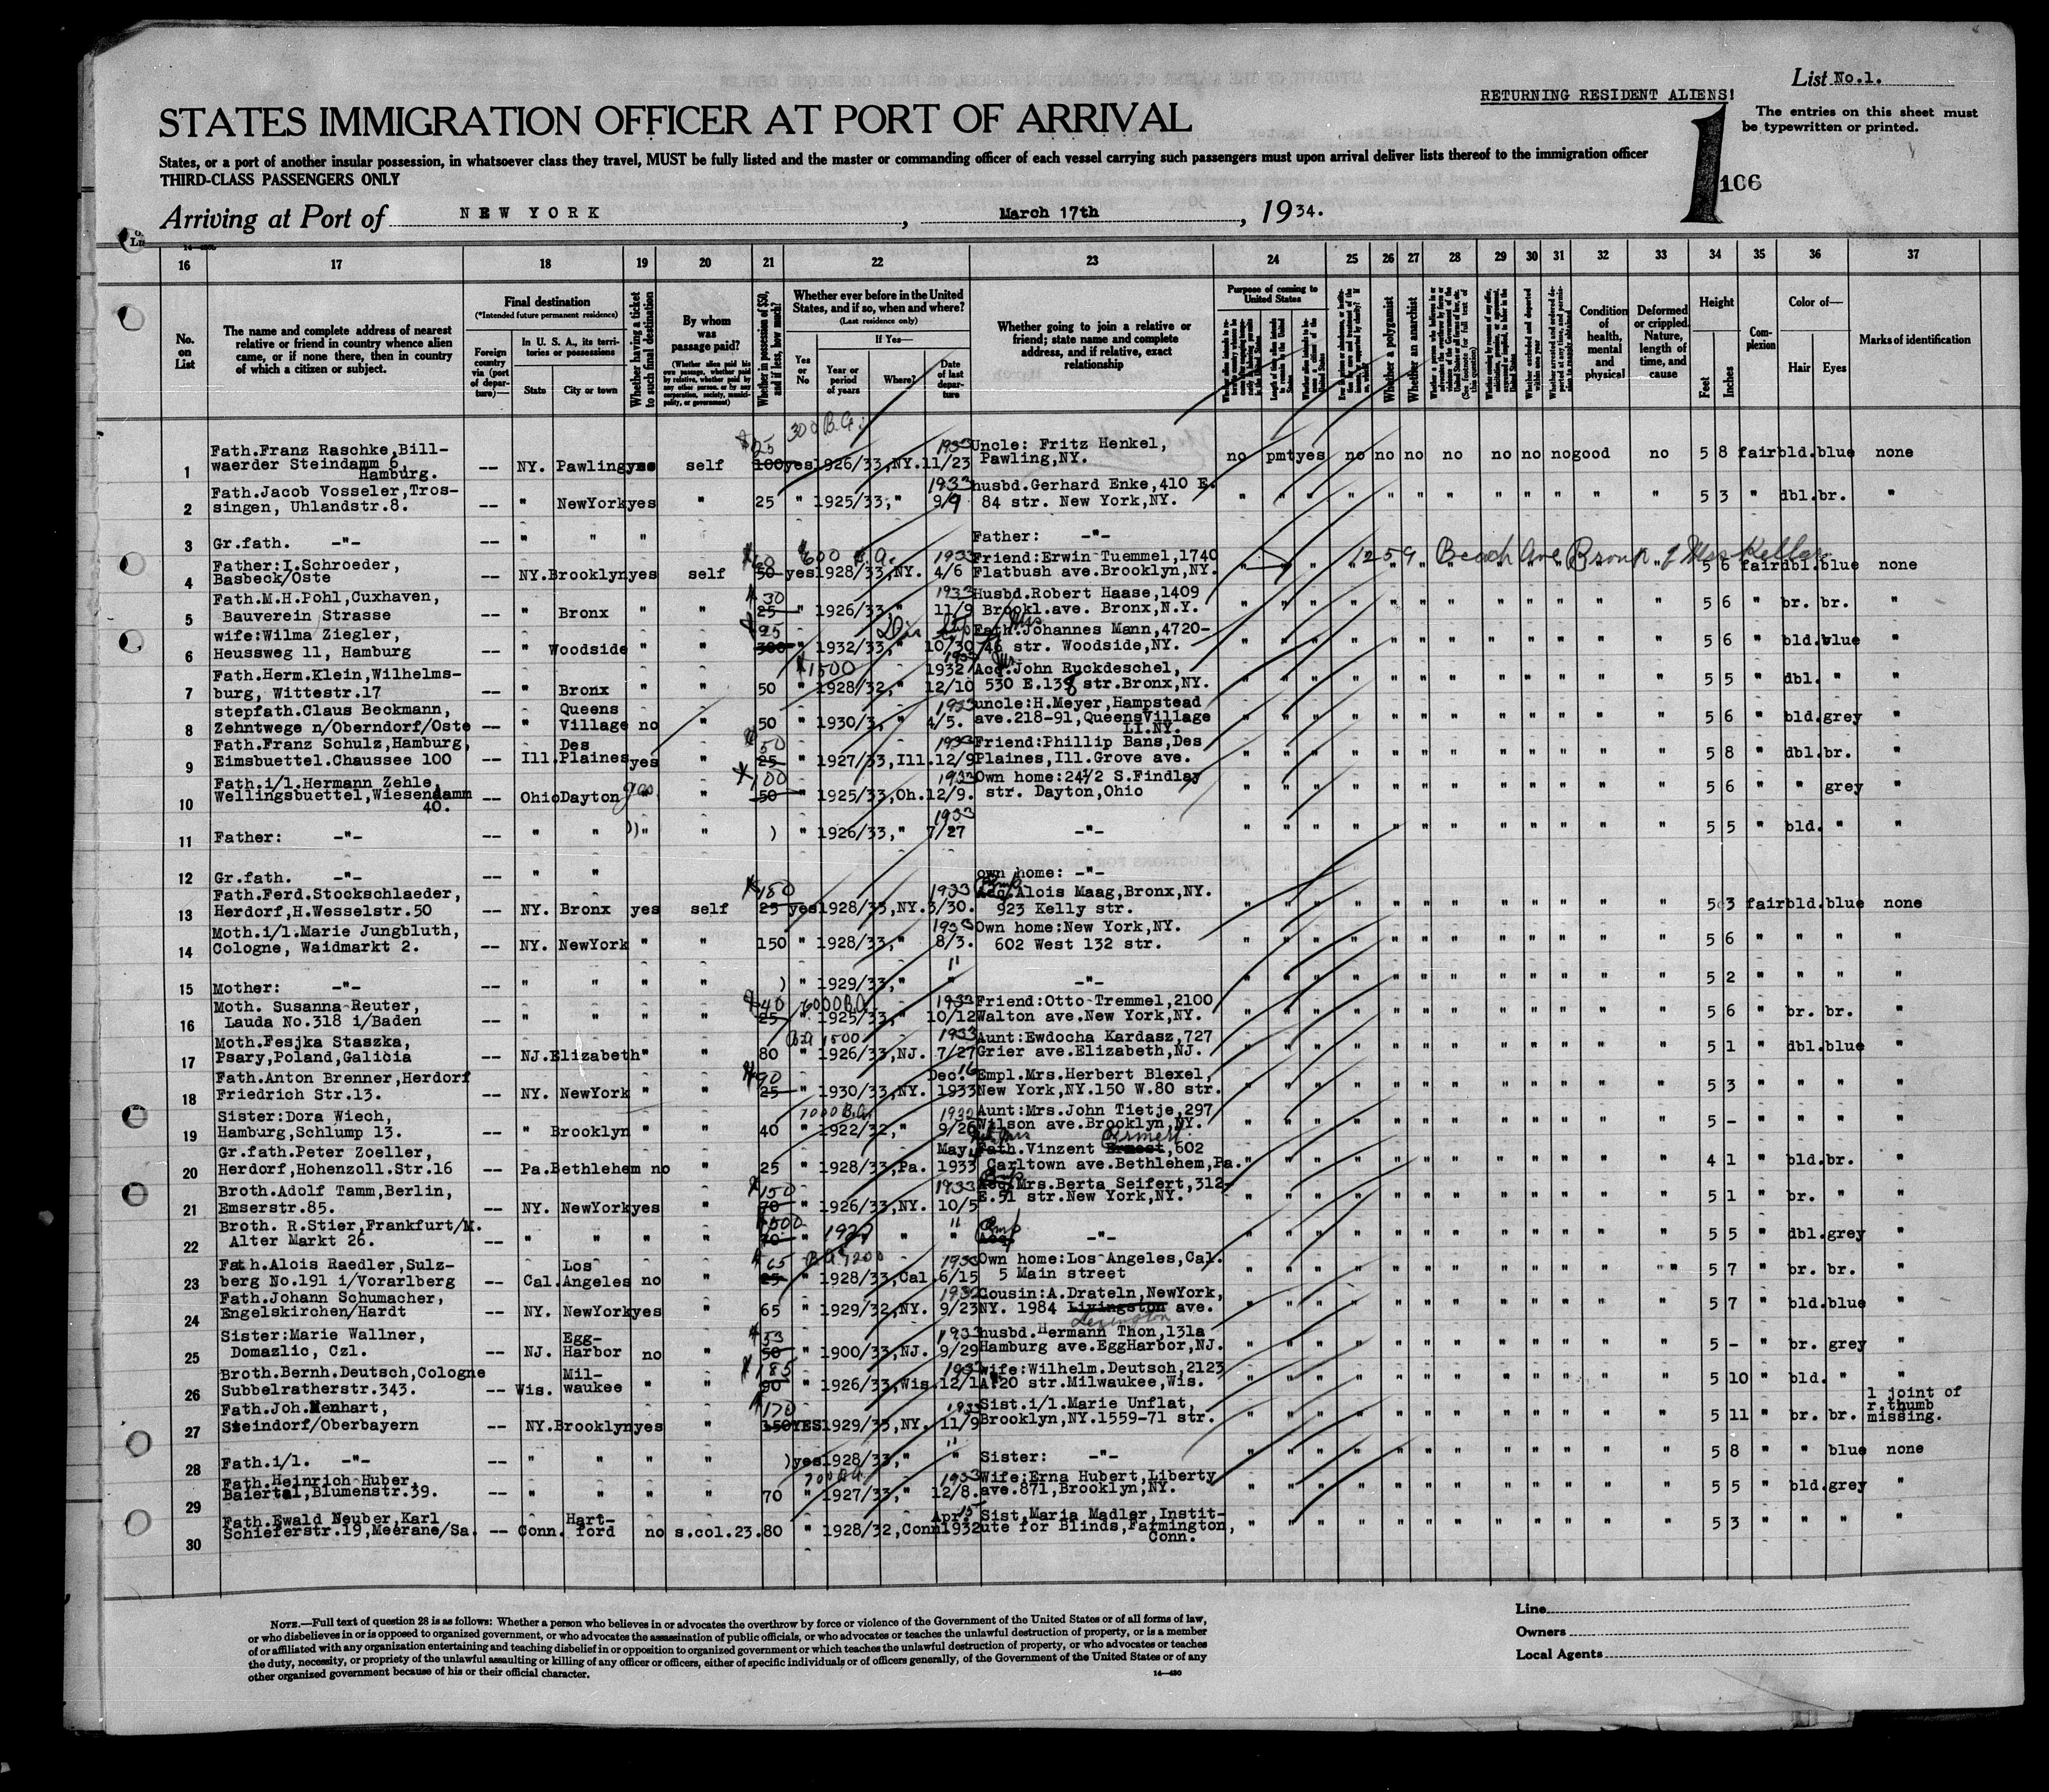 List No.1.
RETURNING RESIDENT ALIENS!
STATES IMMIGRATION OFFICER AT PORT OF ARRIVAL
1
The entries on this sheet must
be typewritten or printed.
States, or a port of another insular possession, in whatsoever class they travel, MUST be fully listed and the master or commanding officer of each vessel carrying such passengers must upon arrival deliver lists thereof to the immigration officer
THIRD-CLASS PASSENGERS ONLY
106
Arriving at Port of NEW YORK, March 17th, 1934.
16 17 18 19 20 21 22 23 24 25 26 27 28 29 30 31 32 33 34 35 36 37
No. on List
The name and complete address of nearest relative or friend in country whence alien came, or if none there, then in country of which a citizen or subject.
Final destination
(*Intended future permanent residence)
Foreign country via (port of departure)—
In U. S. A., its territories or possessions
State
City or town
Whether having a ticket to such final destination
By whom was passage paid?
(Whether alien paid his own passage, whether paid by relative, whether paid by any other person, or by any corporation, society, municipality, or government)
Whether in possession of $50, and if less, how much?
Whether ever before in the United States, and if so, when and where?
(Last residence only)
If Yes—
Yes or No
Year or period of years
Where?
Date of last departure
Whether going to join a relative or friend; state name and complete address, and if relative, exact relationship
Purpose of coming to United States
Whether a polygamist
Whether an anarchist
Condition of health, mental and physical
Deformed or crippled. Nature, length of time, and cause
Height
Feet
Inches
Complexion
Color of—
Hair
Eyes
Marks of identification
300 B.A.
1 Fath.Franz Raschke,Bill- $25 1933 Uncle: Fritz Henkel,
waerder Steindamm 6, -- NY. Pawling yes self 100 yes 1926/33,NY. 11/23 Pawling,NY. no pmt yes no no no no no no no good no 5 8 fair bld. blue none
Hamburg.
2 Fath.Jacob Vosseler,Tros- 1933 husbd.Gerhard Enke,410 E.
singen, Uhlandstr.8. -- " NewYork yes " 25 " 1925/33, " 9/9 84 str. New York,NY. 5 3 " dbl. br. "
3 Gr.fath. -"- -- " " " Father: -"-
4 Father:I.Schroeder, $60 $600 B.A. 1933 Friend:Erwin Tuemmel,1740 1259 Beach Ave Bronx
Basbeck/Oste -- NY. Brooklyn yes self 50 yes 1928/33,NY. 4/6 Flatbush ave.Brooklyn,NY. 5 6 fair dbl. blue none
5 Fath.M.H.Pohl,Cuxhaven, $30 1933 Husbd.Robert Haase,1409
Bauverein Strasse -- " Bronx " " 25 " 1926/33," 11/9 Brookl.ave. Bronx,N.Y. 5 6 " br. br. "
6 wife:Wilma Ziegler, Fath.Johannes Mann,4720-
Heussweg 11, Hamburg -- " Woodside " " 300 " 1932/33," 10/30 46 str. Woodside,NY. 5 6 " bld. blue "
7 Fath.Herm.Klein,Wilhelms- $1500 1932 Acq.John Ruckdeschel,
burg, Wittestr.17 -- " Bronx " " 50 " 1928/32," 12/10 530 E.138 str.Bronx,NY. 5 5 " dbl. " "
8 stepfath.Claus Beckmann, Queens 1933 uncle:H.Meyer,Hampstead
Zehntwege n/Oberndorf/Oste -- " Village no " 50 " 1930/3, " 4/5. ave.218-91,QueensVillage 5 6 " bld. grey "
LI.NY.
9 Fath.Franz Schulz,Hamburg, Des $50 1933 Friend:Phillip Bans,Des
Eimsbuettel.Chaussee 100 -- Ill. Plaines yes " 25 " 1927/33,Ill. 12/9 Plaines,Ill.Grove ave. 5 8 " dbl. br. "
10 Fath.i/l.Hermann Zehle, $100 1933 Own home:24½ S.Findlay
Wellingsbuettel,Wiesendamm -- Ohio Dayton yes " 50 " 1925/33,Oh. 12/9. str. Dayton,Ohio 5 6 " " grey "
40.
11 Father: -"- -- " " " " ) " 1926/33," 1933 7/27 -"- 5 5 " bld. " "
12 Gr.fath. -"- -- " " own home: -"-
13 Fath.Ferd.Stockschlaeder, $150 1933 Acq.Alois Maag,Bronx,NY.
Herdorf,H.Wesselstr.50 -- NY. Bronx yes self 25 yes 1928/33,NY. 3/30. 923 Kelly str. 5 3 fair bld. blue none
14 Moth.i/l.Marie Jungbluth, 1933 Own home:New York,NY.
Cologne, Waidmarkt 2. -- NY. NewYork " " 150 " 1928/33," 8/3. 602 West 132 str. 5 6 " " " "
15 Mother: -"- -- " " " " ) " 1929/33," " -"- 5 2 " " " "
16 Moth. Susanna Reuter, $40 6000 B.A. 1933 Friend:Otto Tremmel,2100
Lauda No.318 i/Baden -- " " " " 25 " 1925/33," 10/12 Walton ave.New York,NY. 5 6 " br. br. "
17 Moth.Fesjka Staszka, B.A 1500 1933 Aunt:Ewdocha Kardasz,727
Psary,Poland,Galicia -- NJ. Elizabeth " " 80 " 1926/33,NJ. 7/27 Grier ave.Elizabeth,NJ. 5 1 " dbl. blue "
18 Fath.Anton Brenner,Herdorf $90 Dec. 16 Empl.Mrs.Herbert Blexel,
Friedrich Str.13. -- NY. NewYork " " 25 " 1930/33,NY. 1933 New York,NY.150 W.80 str. 5 3 " " " "
19 Sister:Dora Wiech, 7000 B.A. 1932 Aunt:Mrs.John Tietje,297
Hamburg,Schlump 13. -- " Brooklyn " " 40 " 1922/32," 9/26 Wilson ave.Brooklyn,NY. 5 - " " " "
20 Gr.fath.Peter Zoeller, May Fath.Vinzent Ermert,602
Herdorf,Hohenzoll.Str.16 -- Pa. Bethlehem no " 25 " 1928/33,Pa. 1933 Carltown ave.Bethlehem,Pa. 4 1 " bld. br. "
21 Broth.Adolf Tamm,Berlin, $150 1933 Acq.Mrs.Berta Seifert,312-
Emserstr.85. -- NY. NewYork yes " 70 " 1926/33,NY. 10/5 E.51 str.New York,NY. 5 1 " br. " "
22 Broth. R.Stier,Frankfurt/M. " Emp
Alter Markt 26. -- " " " " 70 " " " -"- 5 5 " dbl. grey "
23 Fath.Alois Raedler,Sulz- Los $65 B.A. 1200 1933 Own home:Los Angeles,Cal.
berg No.191 i/Vorarlberg -- Cal. Angeles no " 25 " 1928/33,Cal. 6/15 5 Main street 5 7 " br. br. "
24 Fath.Johann Schumacher, 1932 Cousin:A.Drateln,NewYork,
Engelskirchen/Hardt -- NY. NewYork yes " 65 " 1929/32,NY. 9/23 NY. 1984 Livingston ave. Lexington 5 7 " bld. blue "
25 Sister:Marie Wallner, Egg- $53 1933 husbd.Hermann Thon,131a
Domazlic, Czl. -- NJ. Harbor no " 50 " 1900/33,NJ. 9/29 Hamburg ave.EggHarbor,NJ. 5 - " br. grey "
26 Broth.Bernh.Deutsch,Cologne Mil- $185 1933 wife:Wilhelm.Deutsch,2123
Subbelratherstr.343. -- Wis. waukee " " 90 " 1926/33,Wis. 12/1 A.20 str.Milwaukee,Wis. 5 10 " bld. " "
27 Fath.Joh.Menhart, $170 1933 Sist.i/l.Marie Unflat, 1 joint of
Steindorf/Oberbayern -- NY. Brooklyn yes " 150 YES 1929/33,NY. 11/9 Brooklyn,NY.1559-71 str. 5 11 " br. br. r.thumb missing.
28 Fath.i/l. -"- -- " " " " ) yes 1928/33," " Sister: -"- 5 8 " " blue none
29 Fath.Heinrich Huber, 700 B.A. 1933 Wife:Erna Hubert,Liberty
Baiertal,Blumenstr.39. -- " " " " 70 " 1927/33," 12/8. ave.871,Brooklyn,NY. 5 5 " bld. grey "
30 Fath.Ewald Neuber,Karl Hart- Apr. 15 Sist,Maria Madler,Instit-
Schieferstr.19,Meerane/Sa. -- Conn. ford no s.col.23. 80 " 1928/32,Conn 1932 ute for Blinds,Farmington, 5 3 " " " "
Conn.
NOTE.—Full text of question 28 is as follows: Whether a person who believes in or advocates the overthrow by force or violence of the Government of the United States or of all forms of law,
or who disbelieves in or is opposed to organized government, or who advocates the assassination of public officials, or who advocates or teaches the unlawful destruction of property, or is a member
of or affiliated with any organization entertaining and teaching disbelief in or opposition to organized government or which teaches the unlawful destruction of property, or who advocates or teaches
the duty, necessity, or propriety of the unlawful assaulting or killing of any officer or officers, either of specific individuals or of officers generally, of the Government of the United States or of any
other organized government because of his or their official character.
14—430
Line
Owners
Local Agents